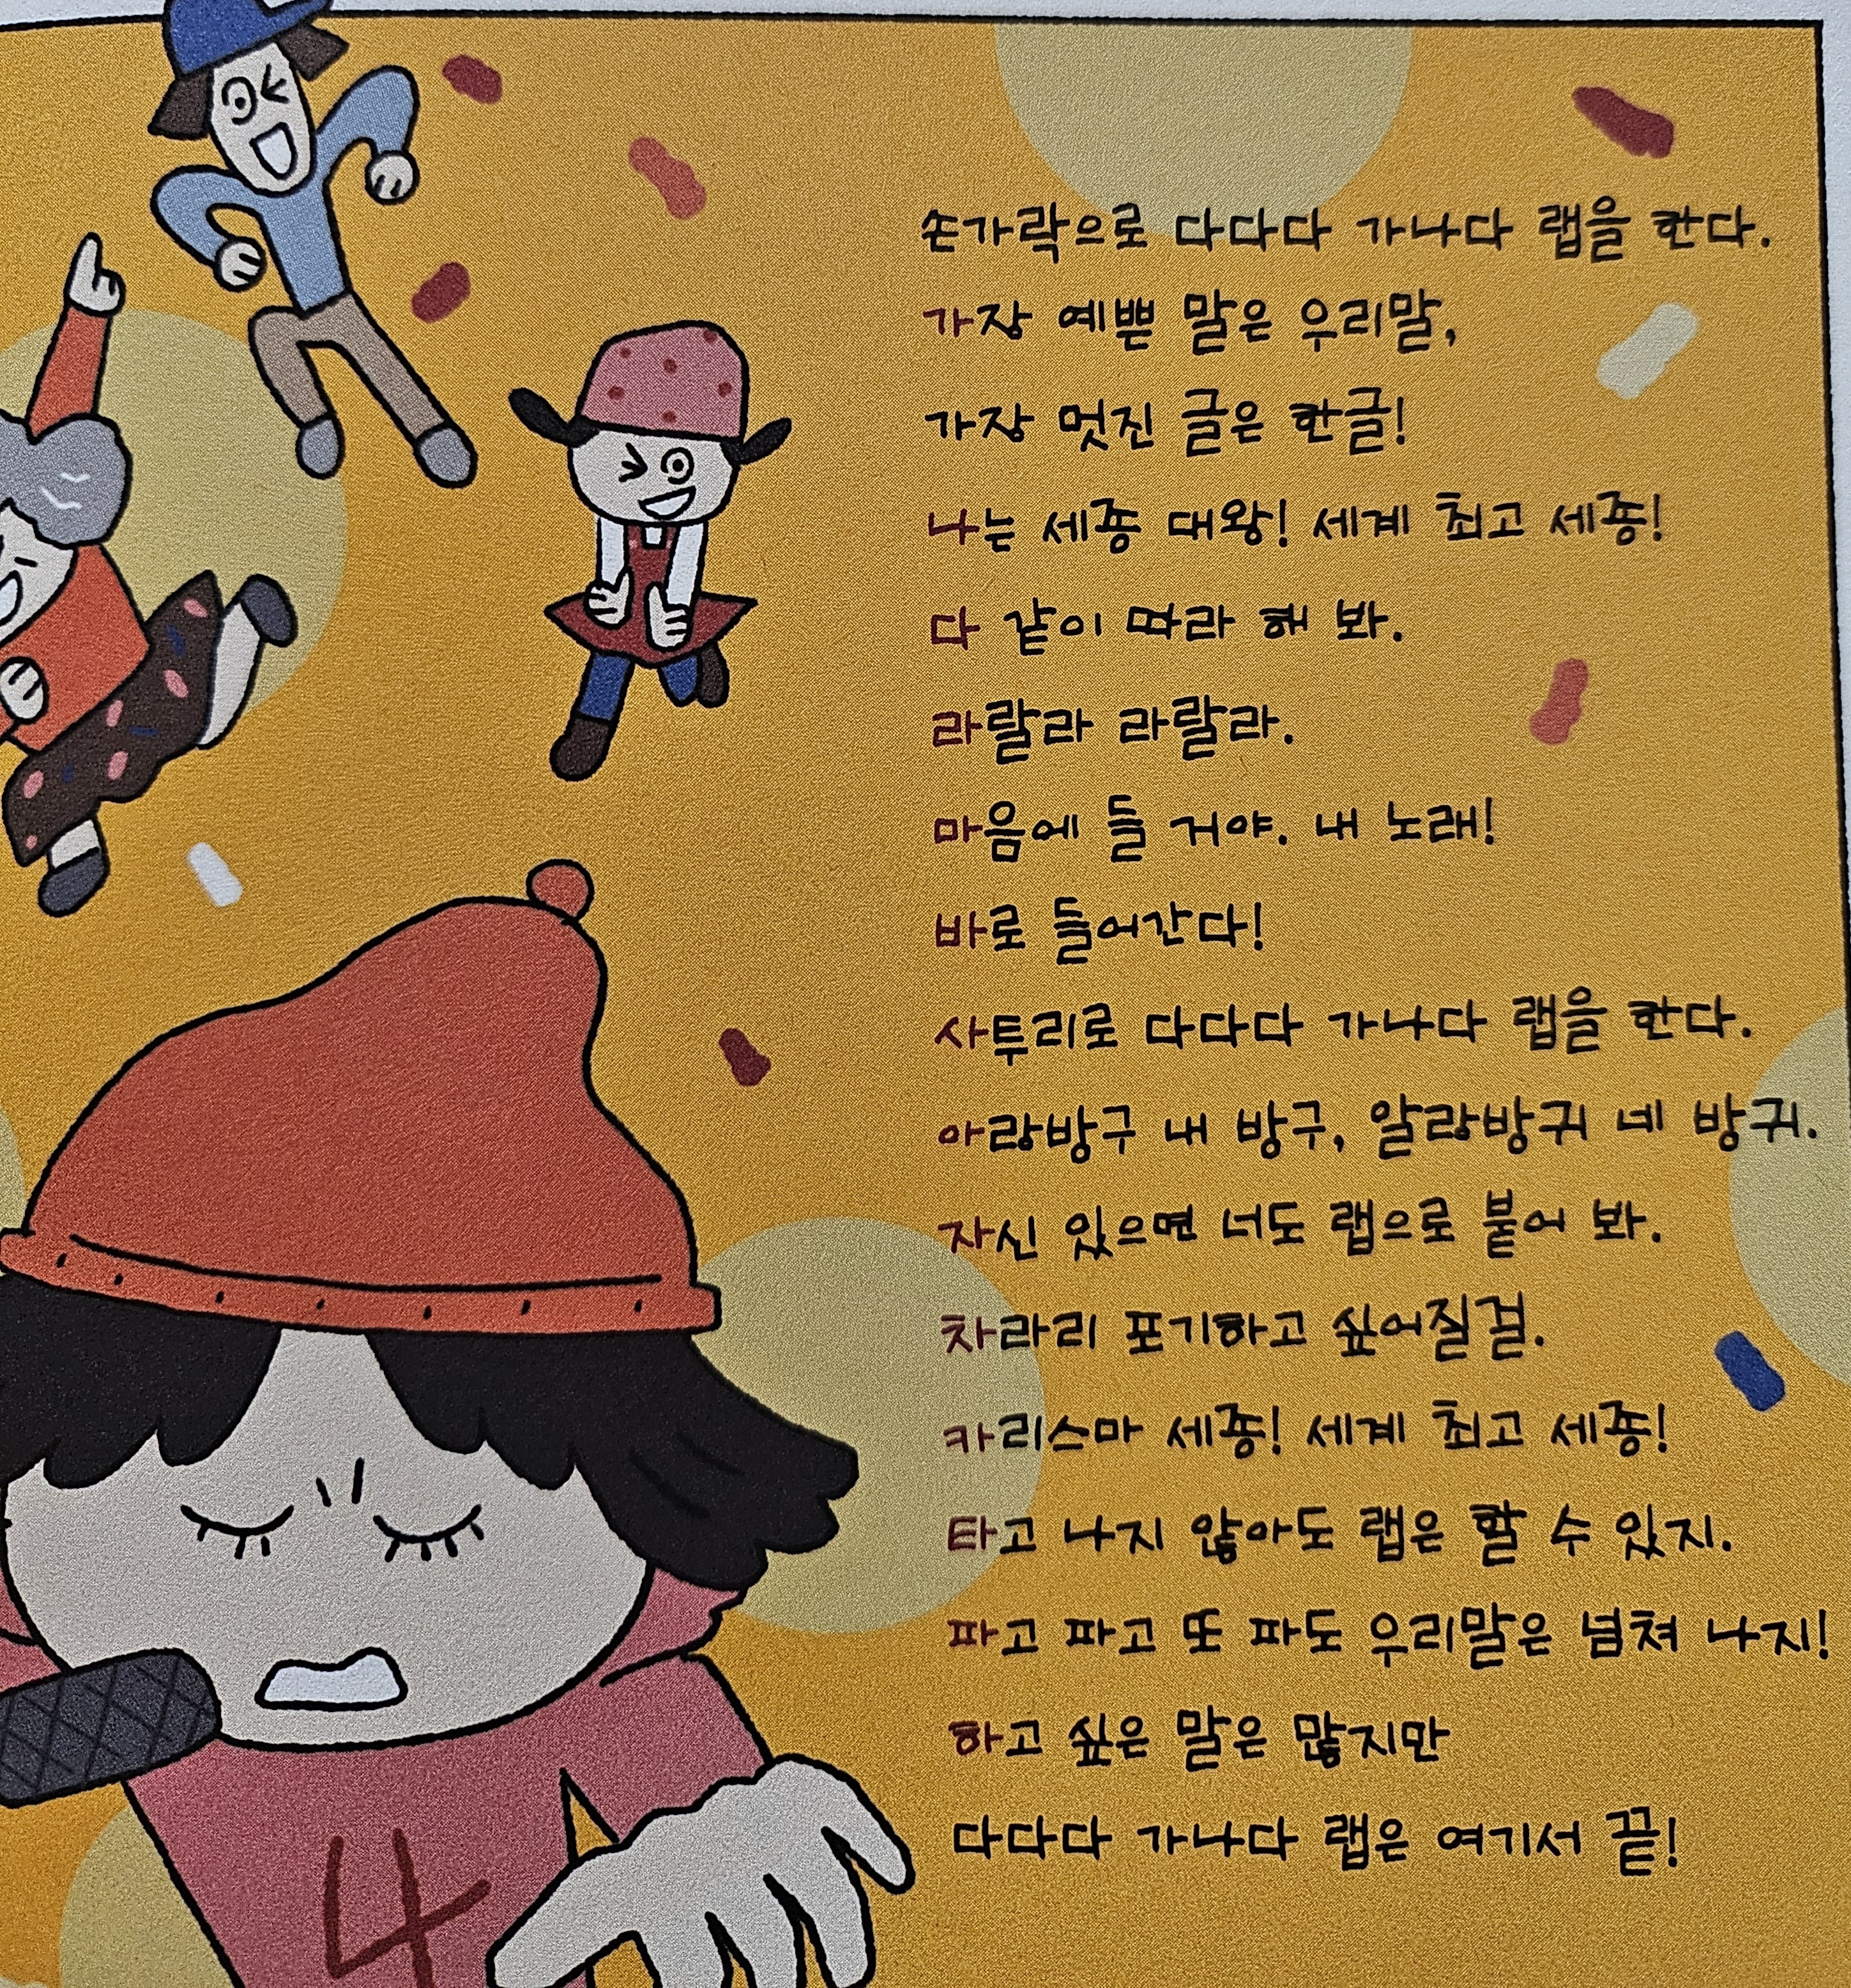 손가락으로 다다다 가나다 랩을 한다.
가장 예쁜 말은 우리말,
가장 멋진 글은 한글!
나는 세종 대왕! 세계 최고 세종!
다 같이 따라 해 봐.
라랄라 라랄라.
마음에 들 거야. 내 노래!
바로 들어간다!
사투리로 다다다 가나다 랩을 한다.
아랑방구 내 방구, 알랑방귀 네 방귀.
자신 있으면 너도 랩으로 붙어 봐.
차라리 포기하고 싶어질걸.
카리스마 세종! 세계 최고 세종!
타고 나지 않아도 랩은 할 수 있지.
파고 파고 또 파도 우리말은 넘쳐 나지!
하고 싶은 말은 많지만
다다다 가나다 랩은 여기서 끝!